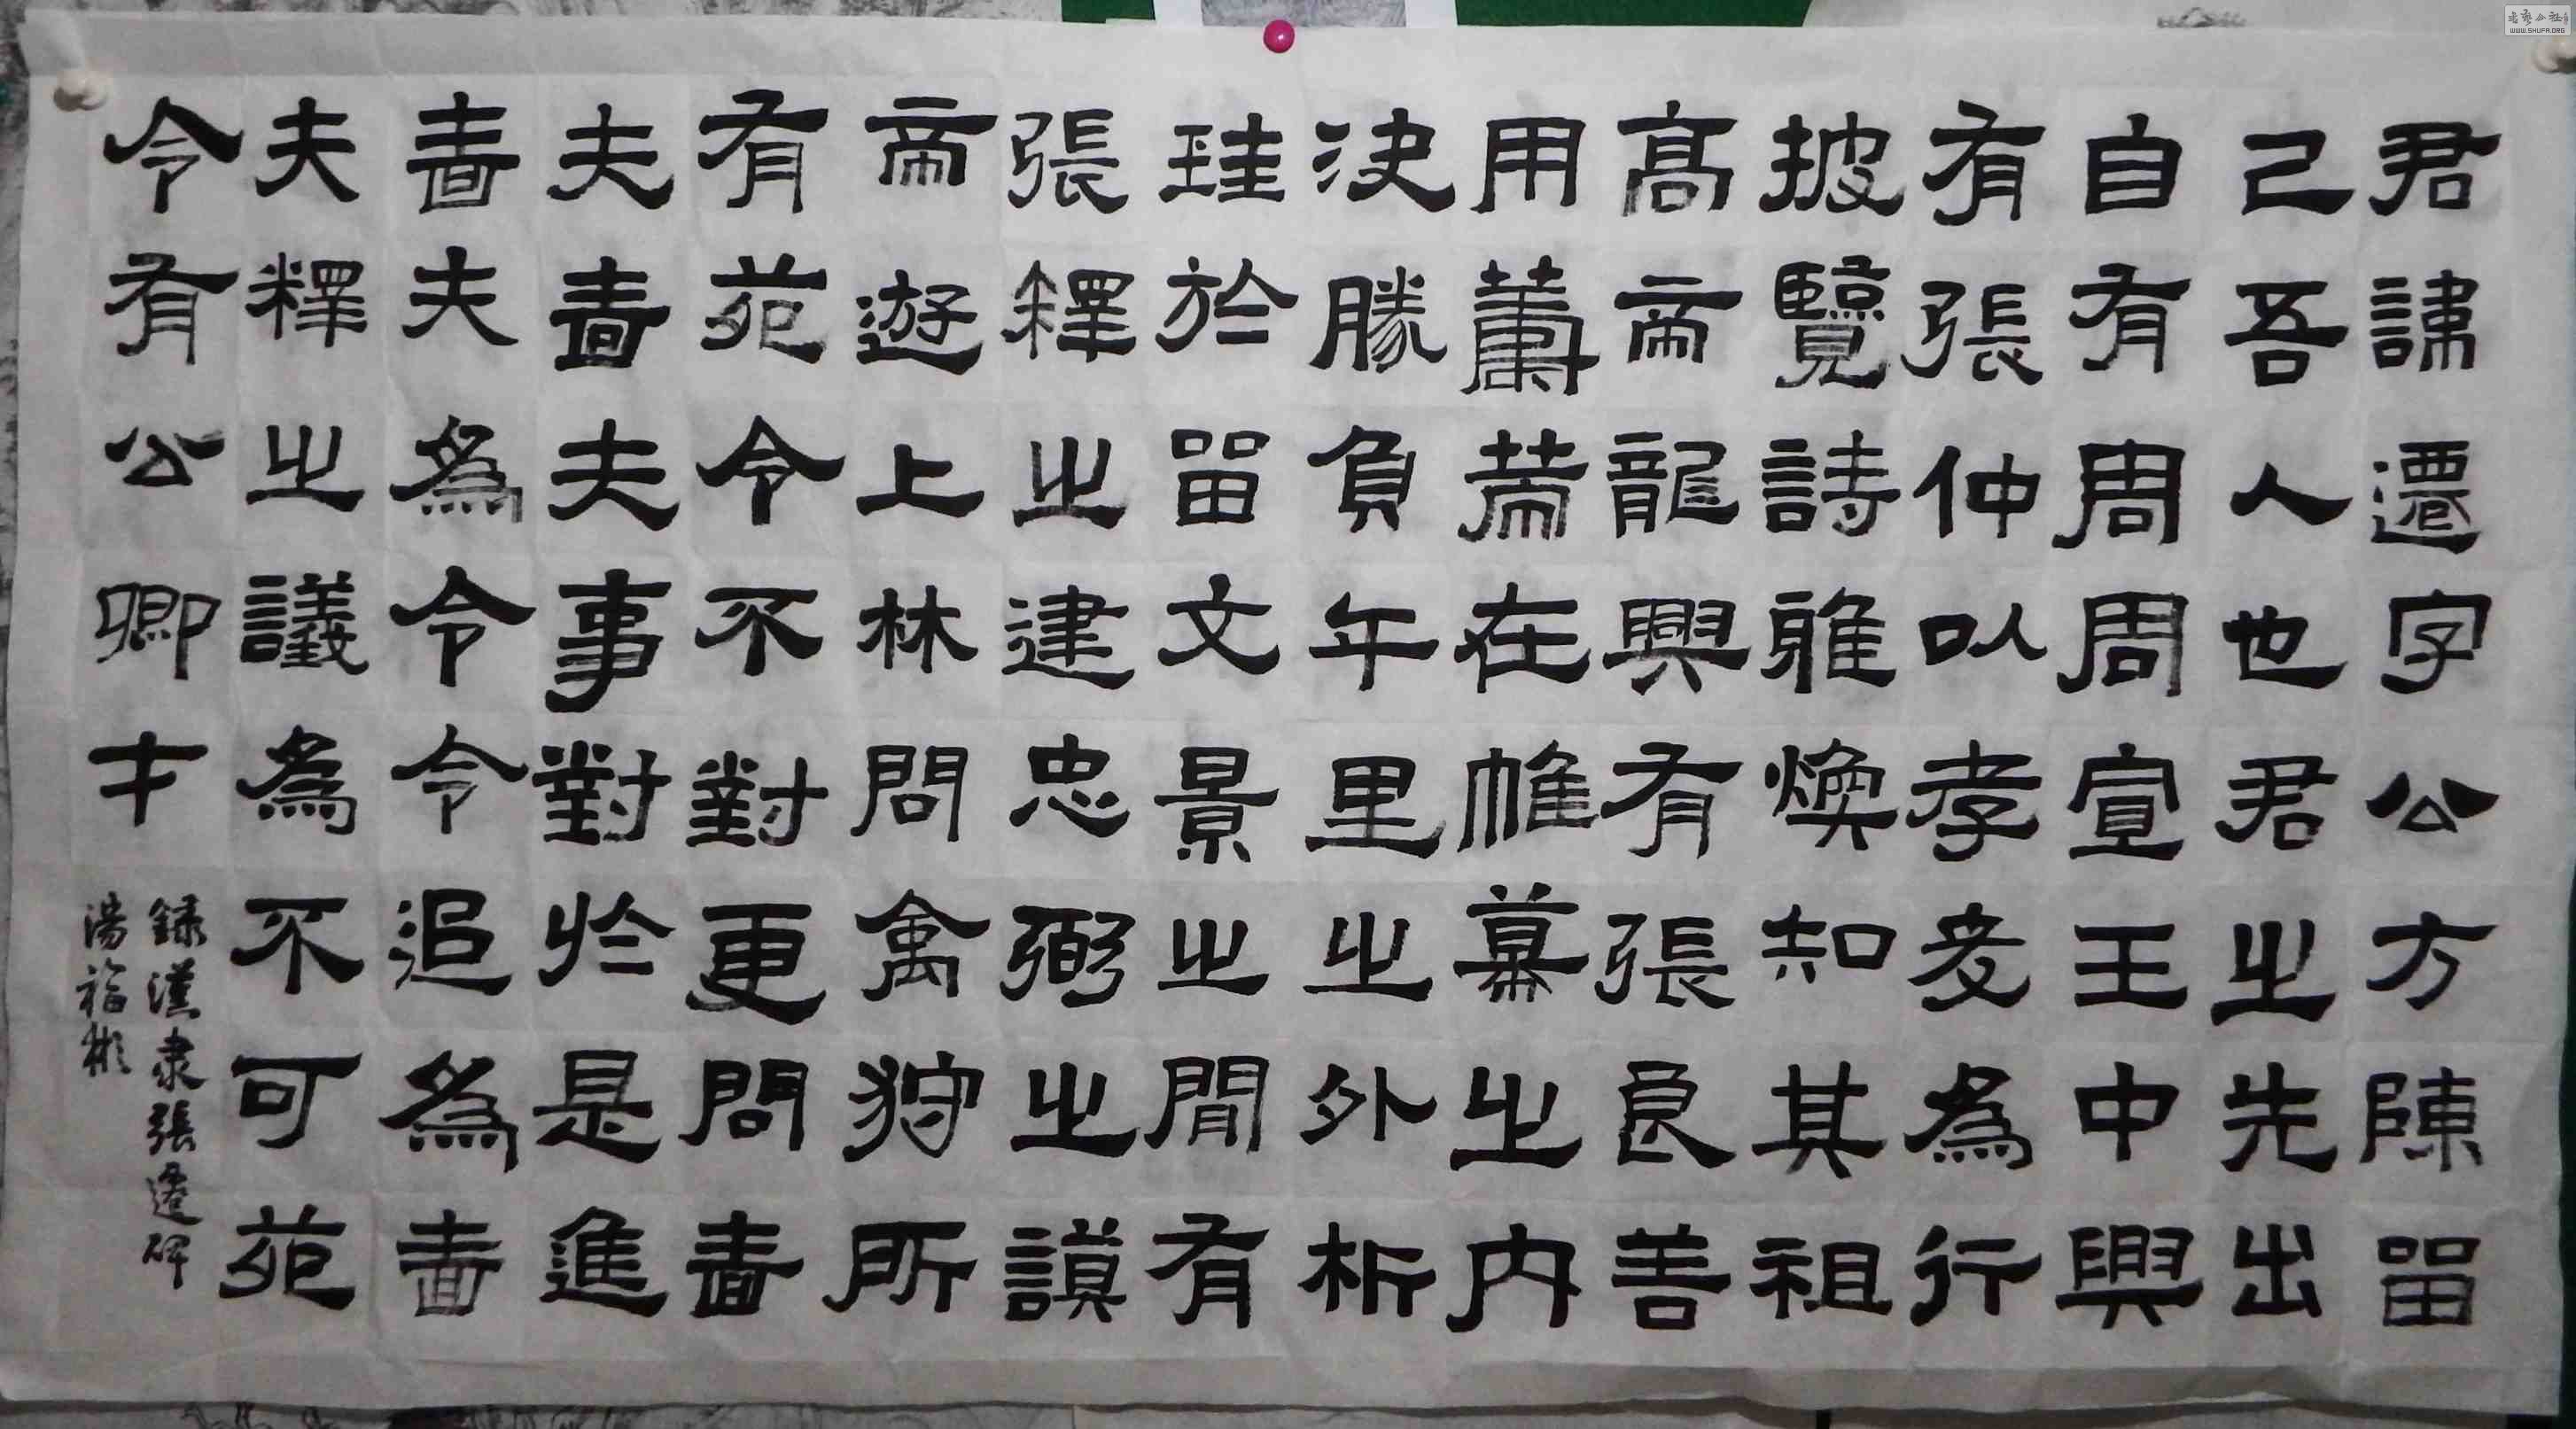 君諱遷字公方陳留
己吾人也君之先出
自有周周宣王中興
有張仲以孝友為行
披覽詩雅煥知其祖
高帝龍興有張良善
用籌策在帷幕之內
決勝負千里之外析
珪於留文景之間有
張釋之建忠弼之謨
帝遊上林問禽狩所
有苑令不對更問嗇
夫嗇夫事對於是進
嗇夫為令令退為嗇
夫釋之議為不可苑
令有公卿才
錄漢隸張遷碑
湯福彬
书艺公社
WWW.SHUFA.ORG